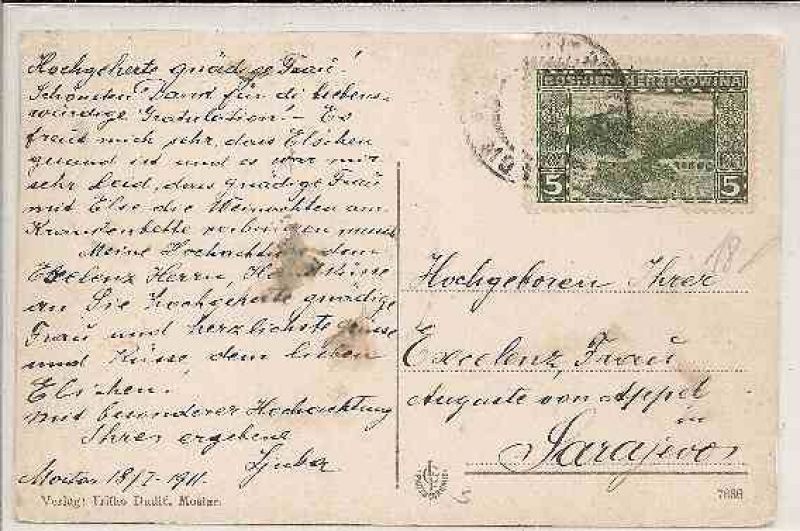 Hochgeherte gnädige Frau!
Schönsten Dank für di liebens-
würdige Gratulation! – Es
freut mich sehr, dass Elschen
gesund ist und es war mir
sehr Leid, dass gnädige Frau
mit Else die Weinachten am
Krankenbette verbringen musst
Meine Hochachtung dem
Exelenz Herrn,
an Sie hochgeherte gnädige
Frau und herzlichste Grüsse
und Küsse dem lieben
Elschen.
mit besonderer Hochachtung
Ihres ergebene
Ljuba
Mostar 18/I. 1911.
Verlag: Trifko Dudić, Mostar.
BOSNIEN HERZEGOWINA
5 5
18
Hochgeboren Ihrer
Excelenz, Frau
Auguste von Appel
in
Sarajevo
7686